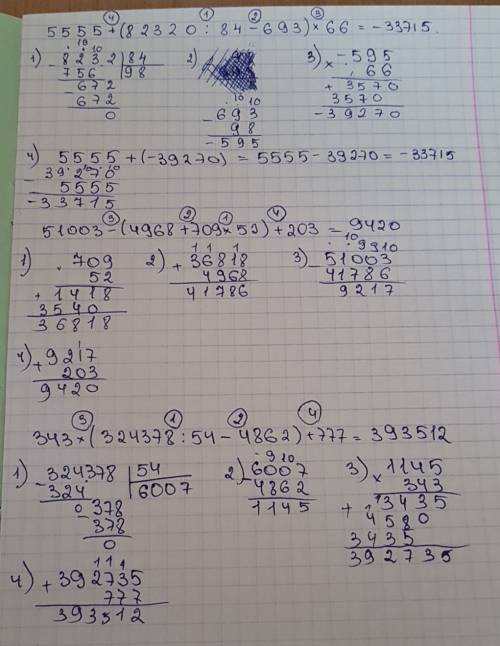 ④ ① ② ③
5555+(82320:84-693)×66=-33715.
1) -8232|84
756 |98
-672
672
0
2)
-693
98
-595
3) ×-595
66
+3570
3570
-39270
4) 5555+(-39270)=5555-39270=-33715
-39270
5555
-33715
③ ② ① ④
51003-(4968+709×52)+203=9420
1) ×709
52
+1418
3540
36818
2) +36818
4968
41786
3) -51003
41786
9217
4) +9217
203
9420
③ ① ② ④
343×(324378:54-4862)+777=393512
1) -324378|54
324 |6007
0378
-378
0
2) -6007
4862
1145
3) ×1145
343
+3435
4580
3435
392735
4) +392735
777
393512